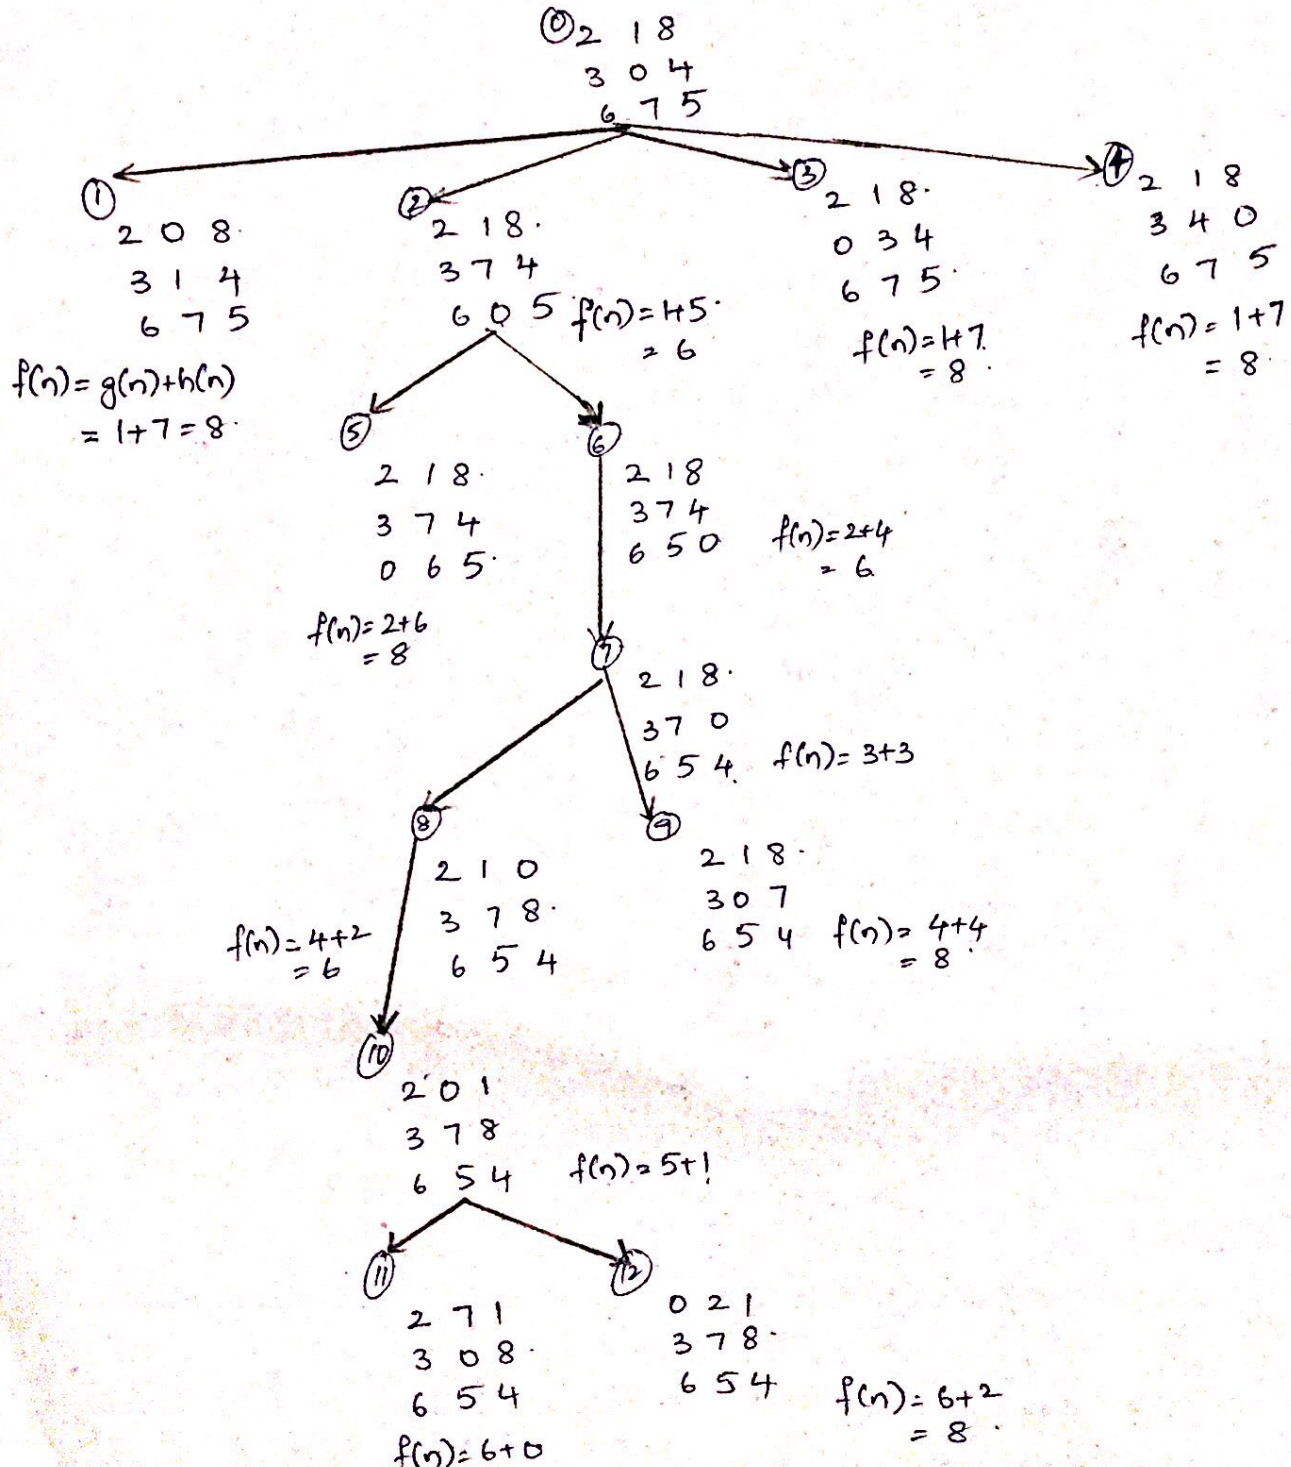 0 2 1 8
3 0 4
6 7 5
1
2 0 8.
3 1 4
6 7 5
f(n) = g(n)+h(n)
= 1+7 = 8.
2
2 1 8.
3 7 4
6 0 5 f(n) = 1+5.
= 6
3
2 1 8.
0 3 4
6 7 5.
f(n) = 1+7.
= 8.
4
2 1 8
3 4 0
6 7 5
f(n) = 1+7
= 8.
5
2 1 8.
3 7 4
0 6 5.
f(n) = 2+6
= 8
6
2 1 8
3 7 4
6 5 0
f(n) = 2+4
= 6.
7
2 1 8.
3 7 0
6 5 4. f(n) = 3+3
8
2 1 0
3 7 8.
6 5 4
f(n) = 4+2
= 6
9
2 1 8.
3 0 7
6 5 4 f(n) = 4+4
= 8.
10
2 0 1
3 7 8
6 5 4 f(n) = 5+1
11
2 7 1
3 0 8.
6 5 4
f(n) = 6+0
12
0 2 1
3 7 8.
6 5 4
f(n) = 6+2
= 8.